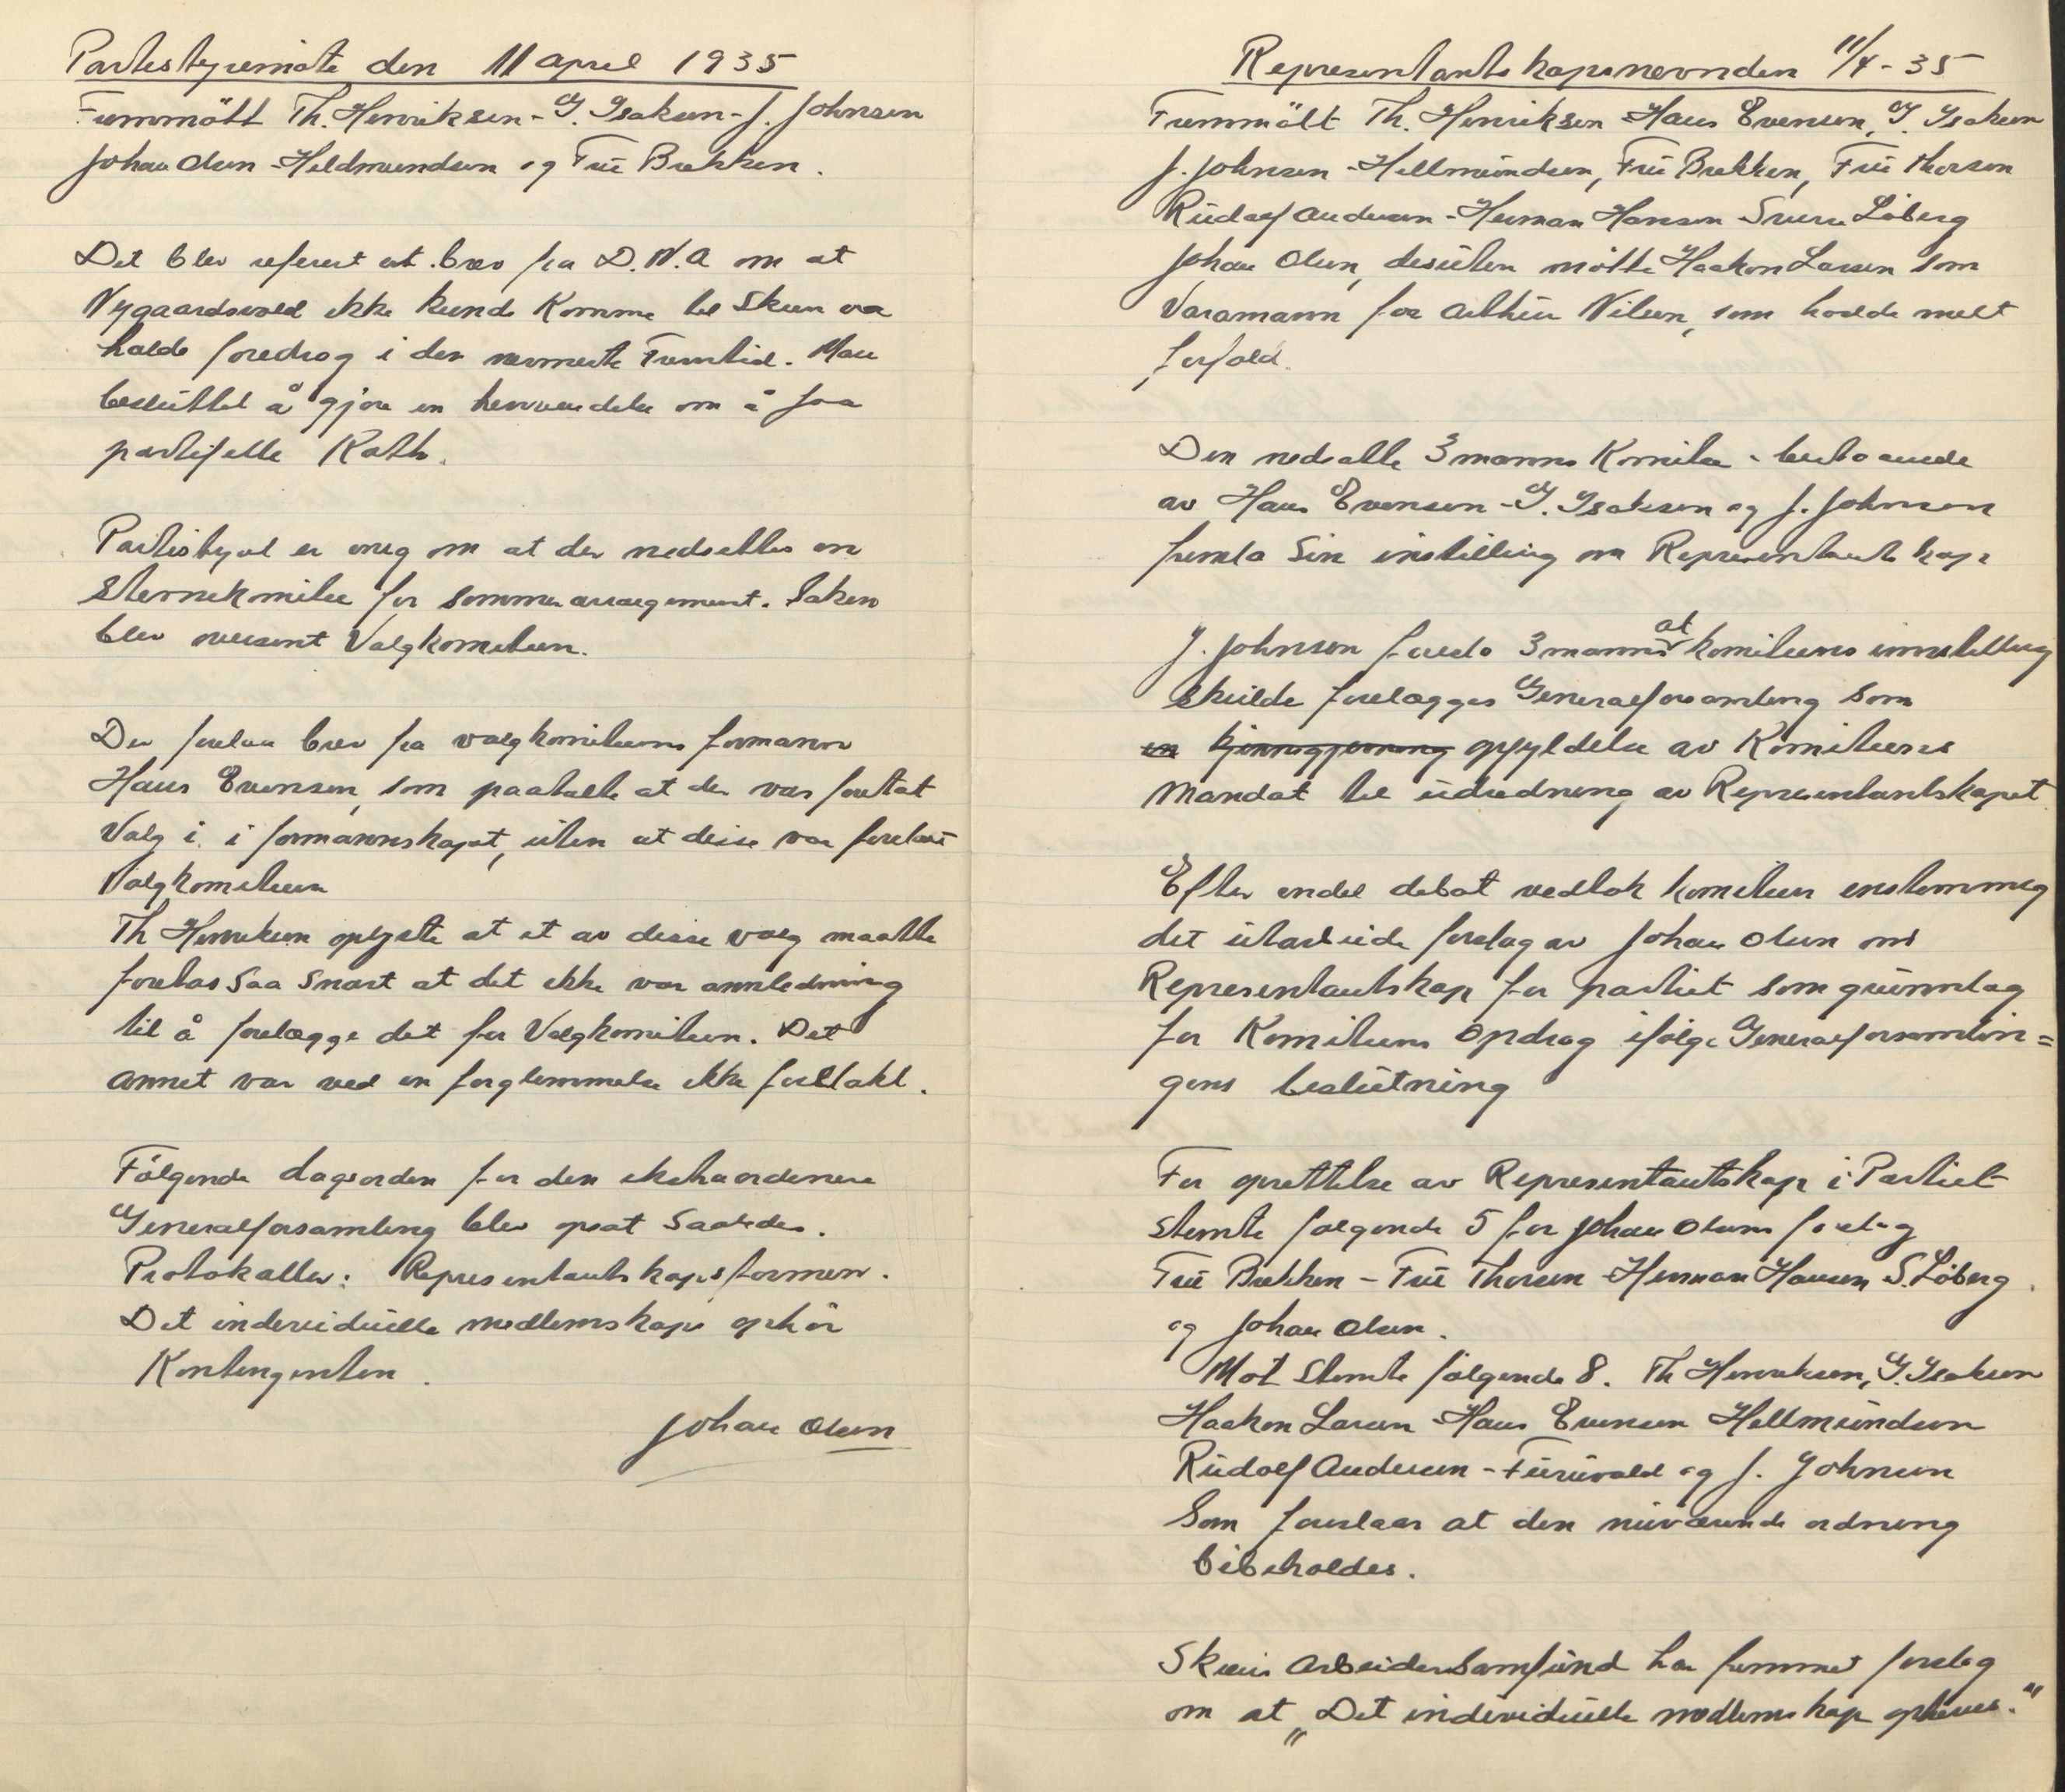 Partistyremöte den 11 april 1935
Fremmött Th. Henriksen - G. Isaksen - J. Johnsen
Johan Olsen - Heldmundsen og Frü Brekken.
Det blev referert et brev fra D.N.A om at
Nygaardsvold ikke kunde komme til Skien og
holde foredrag i den nermeste Fremtid. Man
besluttet å gjöre en henvendelse om å faa
partifelle Roth.
Partistyret er enig om at der nedsettes en
Stevnekomite for Sommerarrangement. Saken
blev oversent Valgkomiteen.
Der forelaa brev fra valgkomiteens formann
Hans Evensen, som paatalte at der var foretat
Valg i i formannskapet, uten at disse var forelagt
Valgkomiteen
Th Henriksen oplyste at et av disse valg maatte
foretas Saa Snart at det ikke var annledning
til å forelægge det for Valgkomiteen. Det
annet var ved en forglemmelse ikke forelakt.
Fölgende dagsorden for den ekstraordinere
Generalforsamling blev opsat Saaledes.
Protokoller: Representantskapsformen.
Det individuelle medlemskaps ophör
Kontingenten.
Johan Olsen
Representantskapsnevnden 11/4 - 35
Fremmött Th. Henriksen - Hans Evensen, G. Isaksen
J. Johnsen - Hellmundsen, Frü Brekken, Frü Thorsen
Rüdolf Andersen - Herman Hansen Sverre Löberg
Johan Olsen, desuten mötte Haakon Larsen som
Varamann for Arthür Nilsen, som hadde melt
forfald.
Den nedsatte 3 manns Komite - bestaaende
av Hans Evensen - G. Isaksen og J. Johnsen
fremla Sin instilling om Representantskap.
J. Johnsen foreslo at 3 manns komiteens innstilling
skulde forelægges Generalforsamling som
en opfyldelse av Komiteens
Mandat til utredning av Representantskapet.
Efter endel debat vedtok komiteen enstemmig
det utarbeide forslag av Johan Olsen om
Representantskap for partiet som grunnlag
for Komiteens Opdrag ifölge Generalforsamlin=
gens beslutning
For oprettelse av Representantskap i Partiet
stemte folgende 5 for Johan Olsens forslag
Frü Brekken - Frü Thorsen - Herman Hansen S. Löberg
og Johan Olsen.
Mot Stemte fölgende 8. Th Henriksen, G. Isaksen
Haakon Larsen - Hans Evensen Hellmundsen
Rüdolf Andersen - Furuvald og J. Johnsen
Som foreslaar at den nuværende ordning
bibeholdes.
Skiens Arbeidersamfund har fremmet forslag
om at „Det individuelle medlemskap opheves."